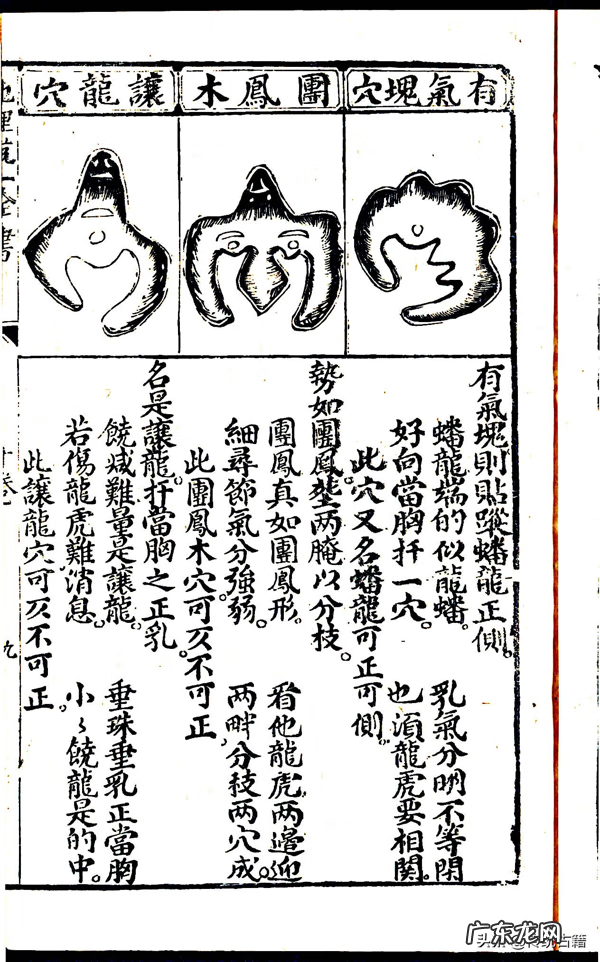 有氣塊穴
團鳳木
讓龍穴
有氣塊則貼蹤蟠龍正側。
蟠龍端的似龍蟠。 乳氣分明不等閑
好向當胸扦一穴。 也須龍虎要相關。
此穴又名蟠龍可正可側。
勢如團鳳。塟两腌以分枝。
團鳳真如團鳳形。 看他龍虎两邉迎
細尋節氣分強弱。 两畔分枝两穴成。
此團鳳木穴可仄不可正
名是讓龍。扦當胸之正乳
饒减難量是讓龍。 垂珠垂乳正當胸
若傷龍虎難消息。 小〻饒龍是的中。
此讓龍穴可仄不可正。
九
广东龙网
古籍